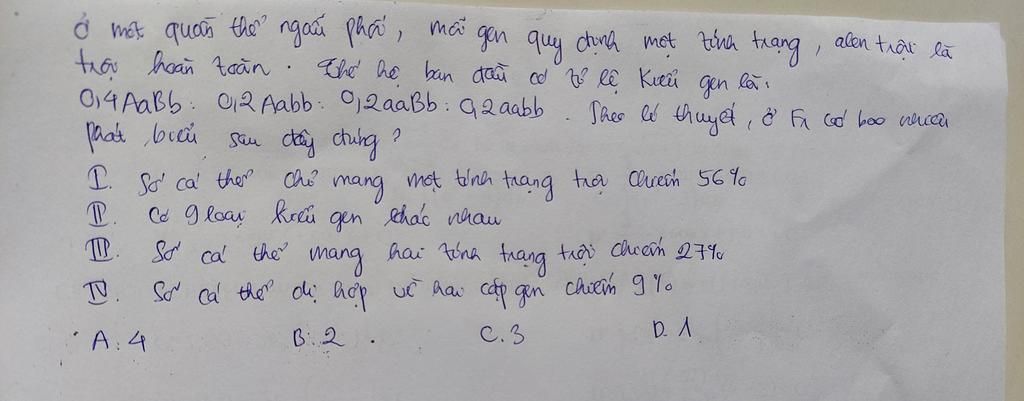 Ở một quần thể ngẫu phối, mỗi gen quy định một tính trạng, alen trội là
trội hoàn toàn. Thế hệ ban đầu có tỉ lệ kiểu gen là:
0,4AaBb: 0,2Aabb: 0,2aaBb: 0,2aabb. Theo lí thuyết, ở F1 có bao nhiêu
phát biểu sau đây đúng?
I. Số cá thể chỉ mang một tính trạng trội chiếm 56%
II. Có 9 loại kiểu gen khác nhau
III. Số cá thể mang hai tính trạng trội chiếm 27%
IV. Số cá thể dị hợp về hai cặp gen chiếm 9%
A: 4 B: 2. C. 3 D. 1